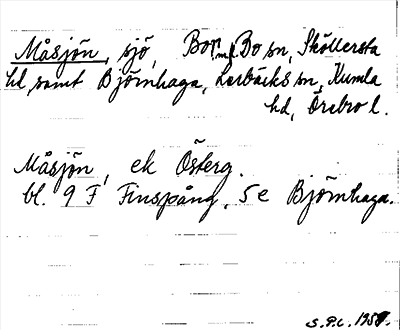 Måsjön, sjö, Bo sn, Sköllersta
hd samt Björnhaga, Lerbäcks sn, Kumla
hd, Örebro l.
Måsjön, ek Österg.
bl. 9 F Finspång, 5 e Björnhaga.
S.P.L. 1957.